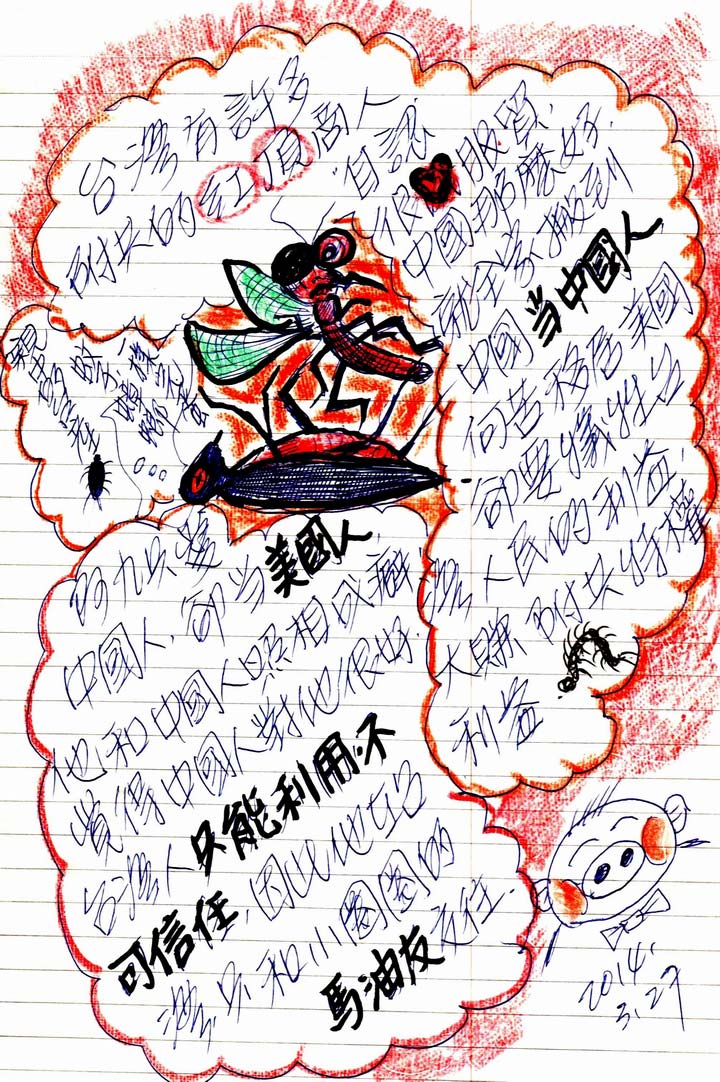 台灣有許多
附共的紅頂商人
自認
很服貿.
中國那麼好.
就全家搬到
中國当中國人
何苦移居美國
卻要犧牲台
灣人民的利益.
大賺附共特權
利益
中國人.卻当美國人
他和中國人照相成癮.
覺得中國人對他很好.
台灣人只能利用.不
可信任.因此他在台
灣.只和小圈圈的
馬油友交往.
2014.
3.27